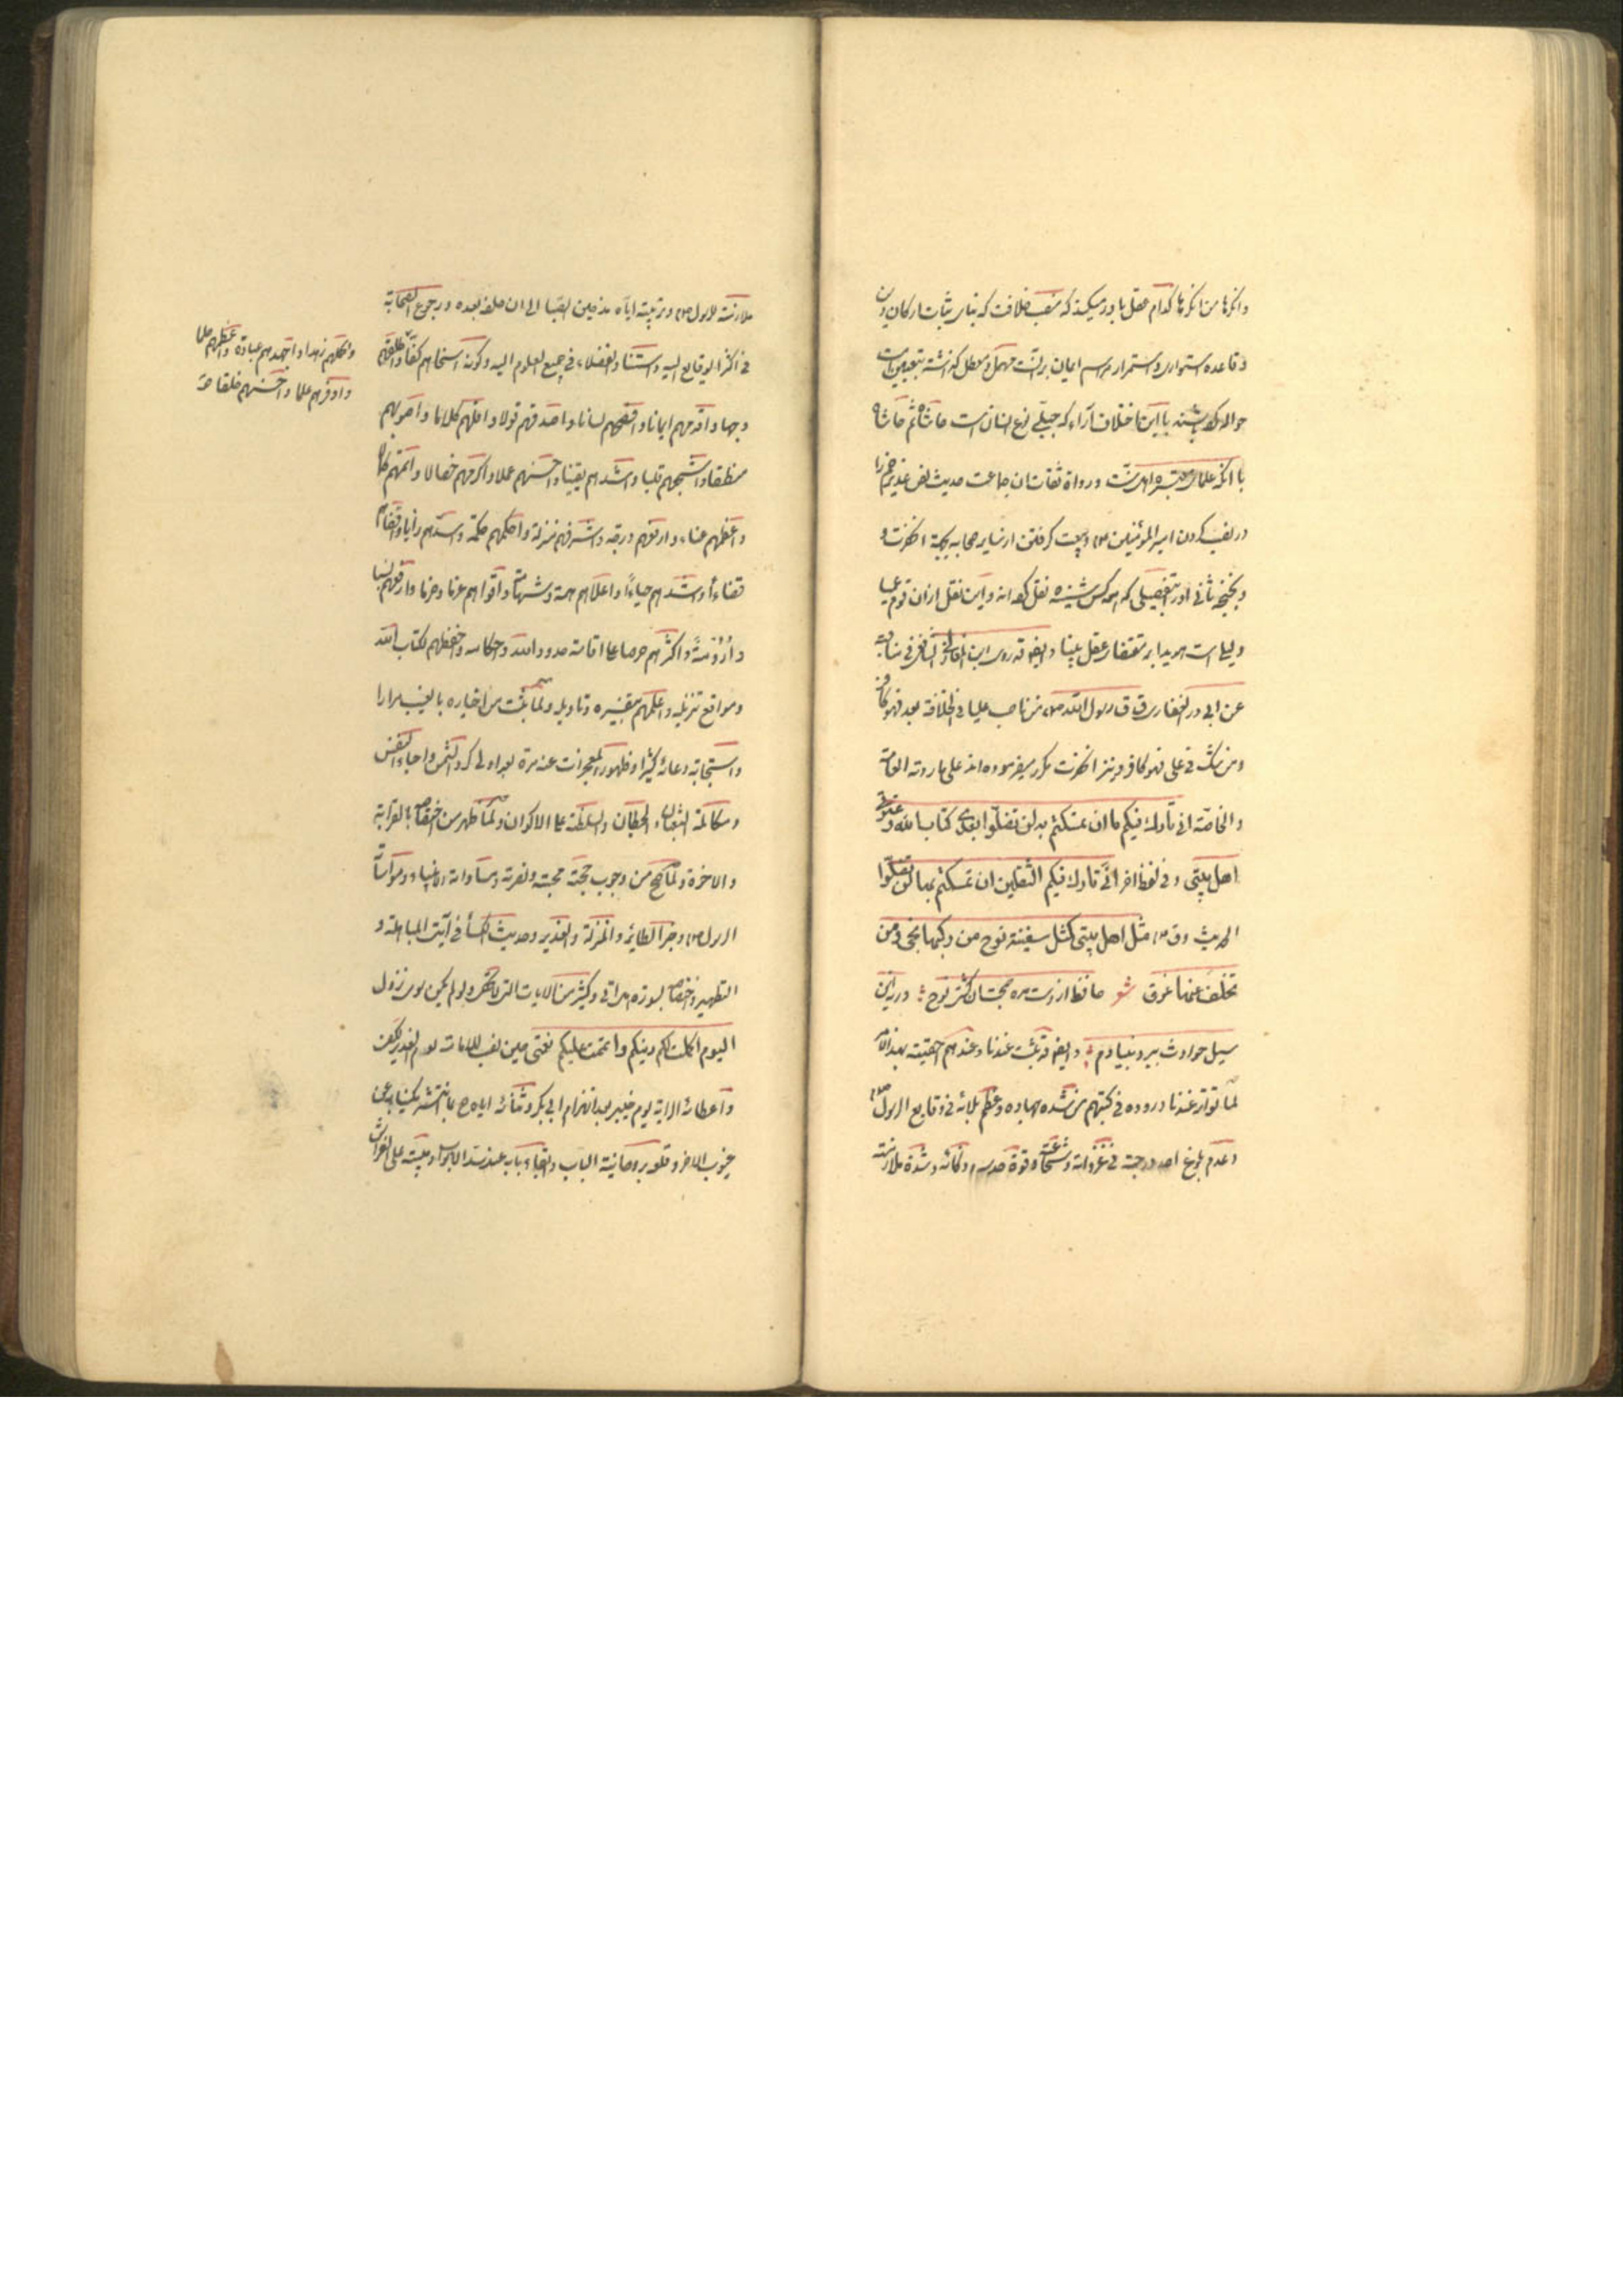 کدام عقل باور میکند که منصب خلافت که بنای ثبات ارکان دین
و قاعده استواری و استمرار مراسم ایمان بر آنست مهمل و معطل گذاشته
با این اختلاف آراء که جبلّی نوع انسان است حاشا ثم حاشا
با آنکه علمای معتبره اهل سنّت و رواة ثقات آن جماعت حدیث نص غدیر خم را
در نصب کردن امیر المؤمنین و بیعت گرفتن از سایر صحابه بجهة آنحضرت و
بخبخه ثانی تفصیلی که همه کس شنیده نقل کرده اند و این نقل از آن قوم
مقتضای عقل بینا و ایضا قد روی ابن المغازلی الشافعی فی مناقبه
عن ابی ذر الغفاری ق ق رسول الله من ناصب علیا فی الخلافة بعدی فهو کافر
ومن شک فی علی فهو کافر و نیز آنحضرت مکرر میفرموده اند علی ما روته العامة
والخاصّة انی تارک فیکم ما ان تمسکتم به لن تضلّوا بعدی کتاب الله وعترتی
اهل بیتی وفی لفظ اخر انّی تارک فیکم الثقلین ان تمسکتم بهما لن تضلّوا
الحدیث وق مثل اهل بیتی کمثل سفینة نوح من رکبها نجی ومن
تخلف عنها غرق شعر حافظ از دست مده صحبت آن کشتی نوح ورنه این
سیل حوادث ببرد بنیادم وایضا قد ثبت عندنا وعندهم حقیته بهذا الامر
لما تواتر عندنا و وروده فی کتبهم من شدّه جهاده وعظم بلائه فی وقایع الرسول
وعدم بلوغ احد درجته فی غزواته وشجاعته وقوة حدسه وذکائه وشدّة ملازمته
ملازمته للرسول وتربیته ایاه من حین الصبا الی ان خلفه بعده ورجوع الصحابة
فی اکثر الوقایع الیه واستناد الفضلاء فی جمیع العلوم الیه وکونه اسخاهم کفّا واطلقهم
وجها واقدمهم ایمانا وافصحهم لسانا واصدقهم قولا واقلّهم کلاما واصوبهم
منطقا واشجعهم قلبا واشدّهم یقینا واحسنهم عملا واکرمهم خصالا واتمّهم کمالا
واعظمهم عناء وارفعهم درجه واشرفهم منزلة واحکمهم حکمة واسدّهم رأیا
قضاءاً واشدّهم حیاءاً واعلاهم همة واقواهم عزما وحزما وارفعهم نسبا
وارومةً واکثرهم حرصا علی اقامة حدود الله واحکامه واحفظهم لکتاب الله
ومواقع تنزیله واعلمهم بتفسیره وتاویله ولما ثبت من اخباره بالغیب مرارا
واستجابة دعائه کثیرا وظهور المعجزات عنه مرة بعد اولی کردّ الشمس واحیاء النفس
ومکالمة الثعبان والحیطان والسلطنة علی الاکوان ولما ظهر من اختصاصه بالقرابة
والاخوة ولما صحّ من وجوب محبته ونصرته ومساواته الانبیاء ومواساة
الرسول وخبر الطائر والمنزلة والغدیر وحدیث الکساء فی آیتی المباهلة و
التطهیر واختصاصه بسوره هل اتی وکثیر من الایات التی لا تحصر ولو لم یکن سوی نزول
الیوم اکملت لکم دینکم واتممت علیکم نعمتی حین نصب للامامة یوم الغدیر یکفی
واعطائه الرایة یوم خیبر بعد انهزام ابی بکر وثنائه ایاه
الباب وفتح باب عند سدّ الابواب ومبیته علی الفراش
واکملهم زهدا واجهدهم عبادة واعظمهم حلما
واوفرهم علما واحسنهم خلقا